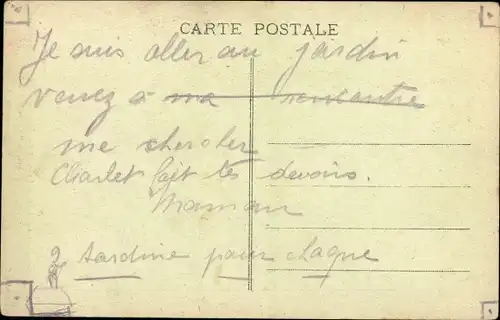 CARTE POSTALE
Je suis aller au jardin
venez à ma rencontre
me chercher
Charlet fait tes devoirs.
Maman
2 sardine pour chaque